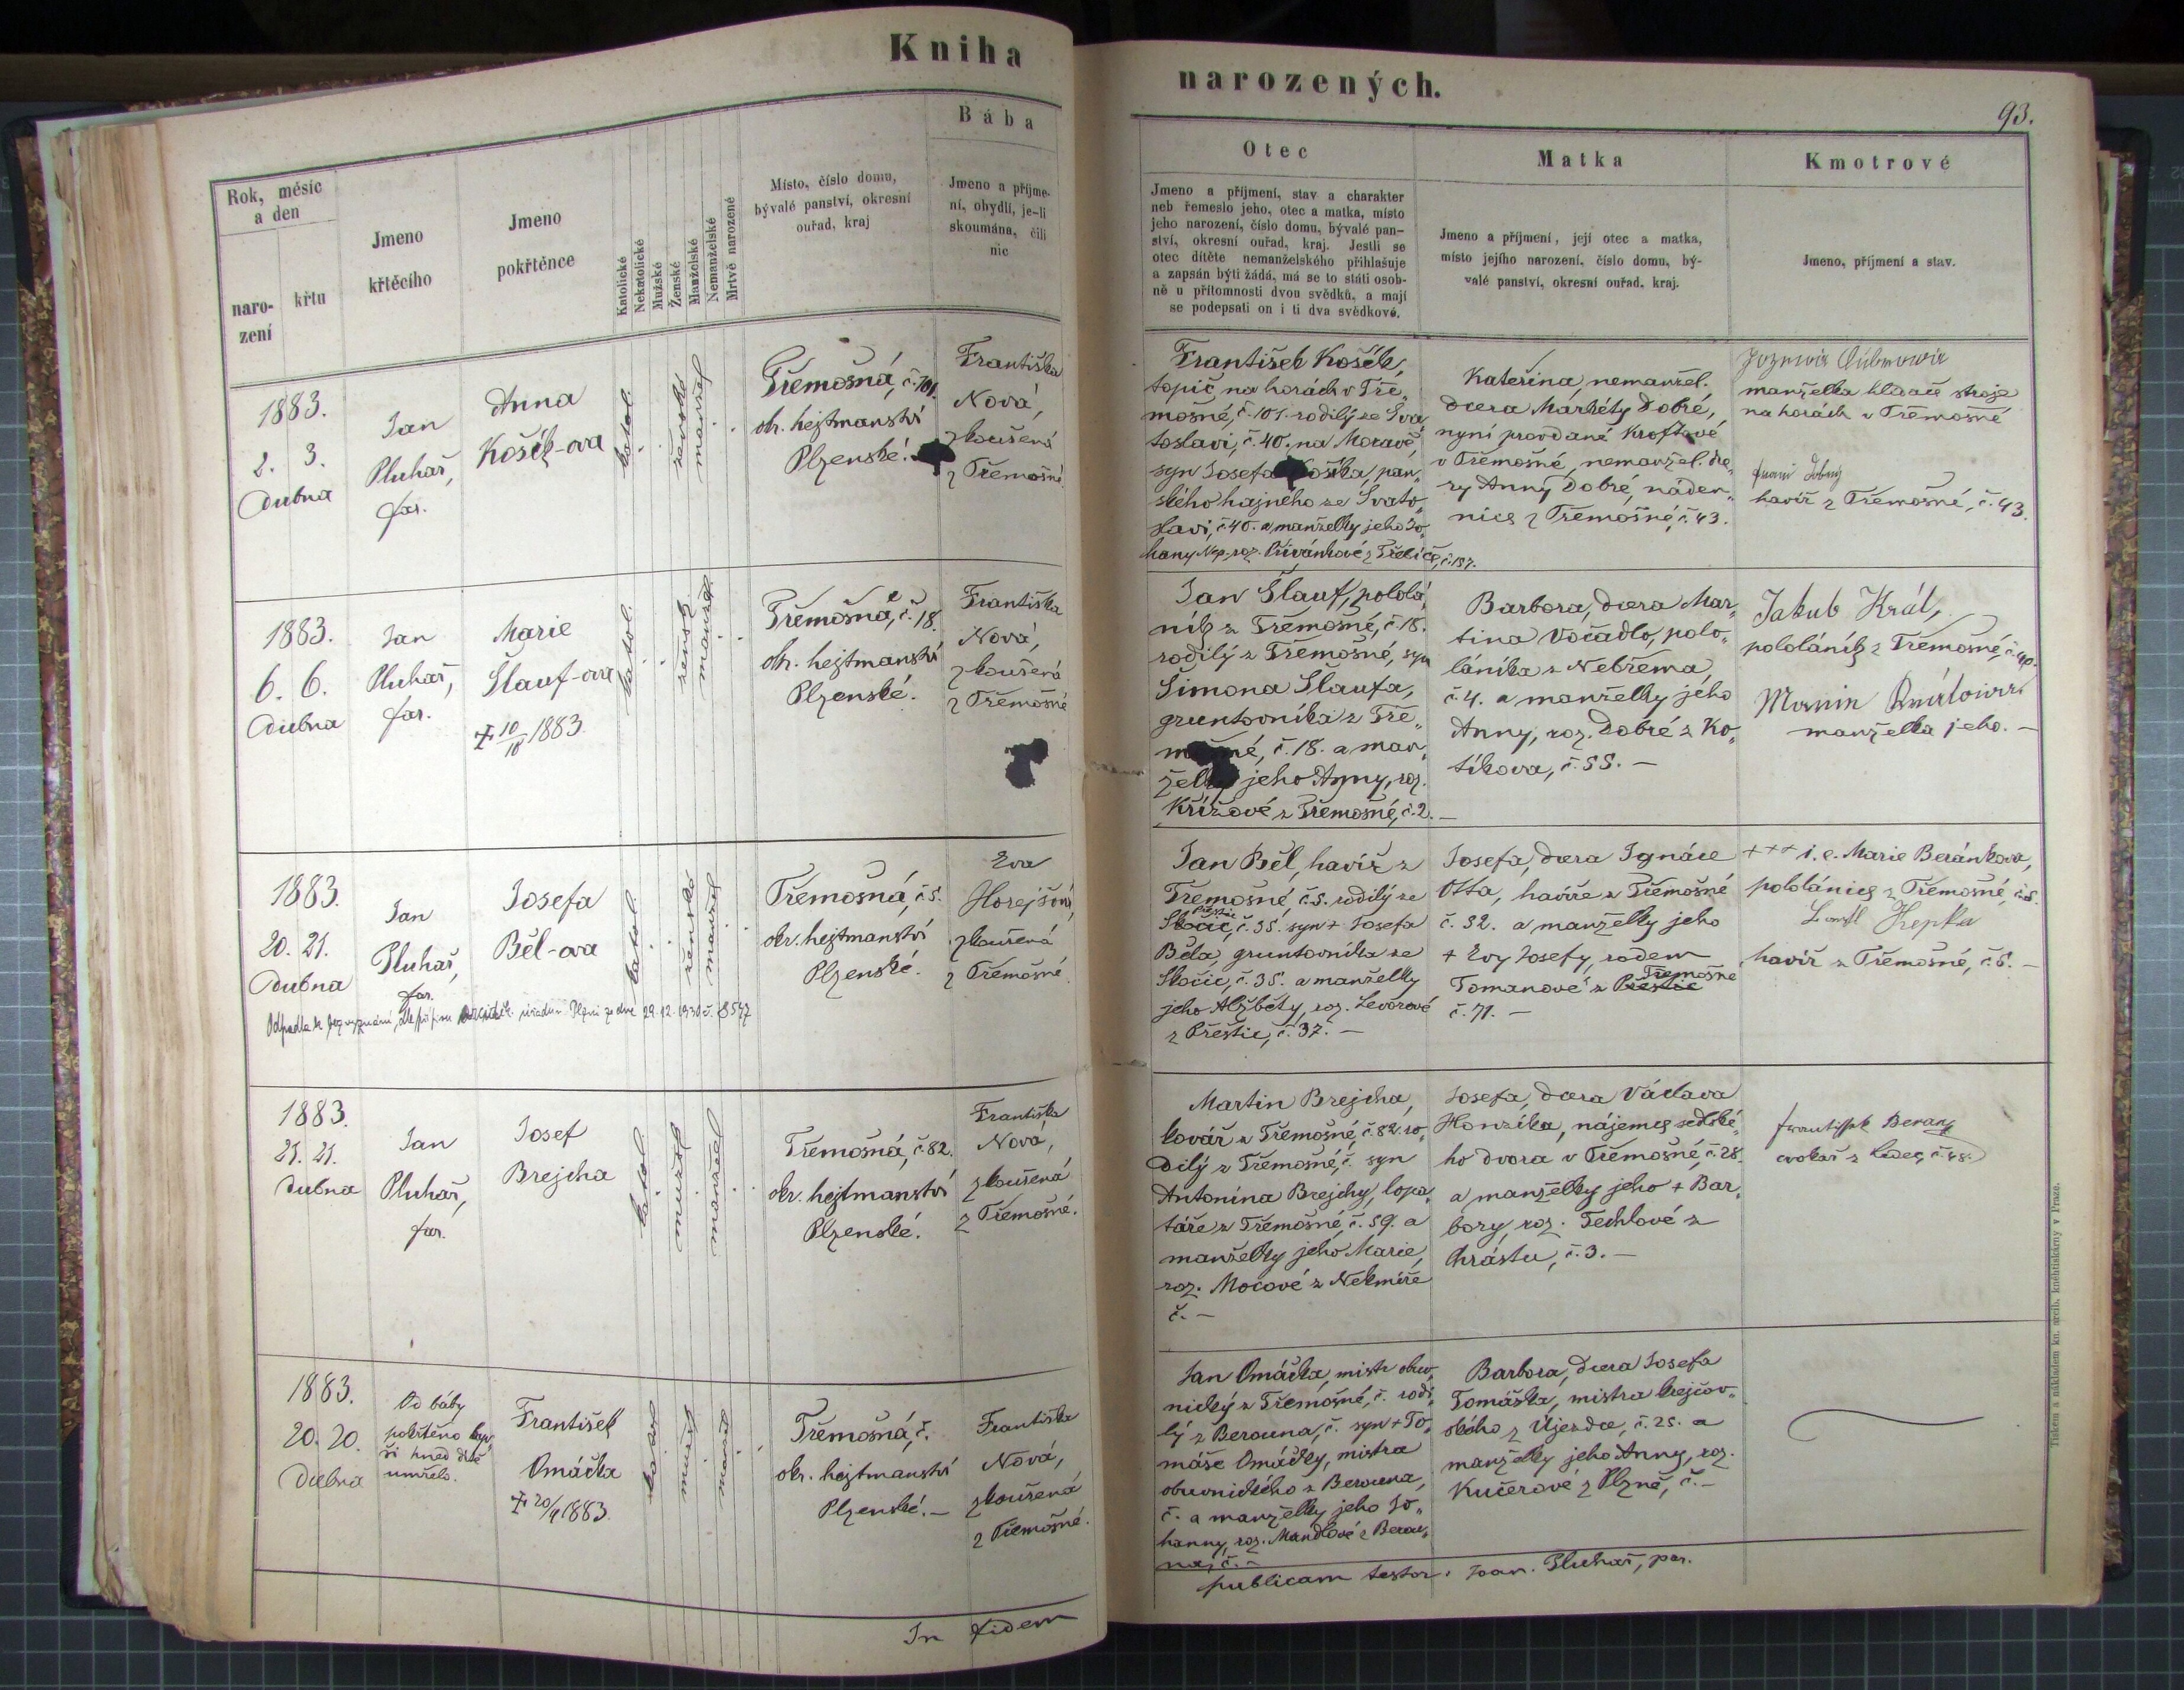 Kniha
narozených.
93.
Rok, měsíc
a den
naro-
zení
křtu
Jmeno
křtěcího
Jmeno
pokřtěnce
Katolické
Nekatolické
Mužské
Ženské
Manželské
Nemanželské
Mrtvě narozené
Místo, číslo domu,
bývalé panství, okresní
ouřad, kraj
Bába
Jmeno a příjme-
ní, obydlí, je-li
skoumána, čili
nic
Otec
Jmeno a příjmení, stav a charakter
neb řemeslo jeho, otec a matka, místo
jeho narození, číslo domu, bývalé pan-
ství, okresní ouřad, kraj. Jestli se
otec dítěte nemanželského přihlašuje
a zapsán býti žádá, má se to státi osob-
ně u přítomnosti dvou svědků, a mají
se podepsati on i ti dva svědkové.
Matka
Jmeno a příjmení, její otec a matka,
místo jejího narození, číslo domu, bý-
valé panství, okresní ouřad, kraj.
Kmotrové
Jmeno, příjmení a stav.
1883.
2. 3.
Dubna
Jan
Pluhař,
far.
Anna
Košík-ova
katol.
ženské
manžel
Třemošná, č. 101.
okr. hejtmanství
Plzenské.
Františka
Nová,
zkoušená
z Třemošné
František Košík,
topič na horách v Tře„
mošné, č. 101. rodilý ze Sva„
toslavi, č. 40. na Moravě,
syn Josefa Košíka, pan„
ského hajného ze Svato„
slavi, č. 40. a manželky jeho Jo„
hany Nep. roz. z Třebíče, č. 137.
Kateřina, nemanžel.
dcera Markéty Dobré,
nyní provdané Kroftové
v Třemošné, nemanžel. dce„
ry Anny Dobré, náden„
nice z Třemošné, č. 43.
manželka hlídače stroje
na horách v Třemošné
havíř z Třemošné, č. 43.
1883.
6. 6.
Dubna
Jan
Pluhař,
far.
Marie
Šlauf-ova
‡ 10/10 1883.
katol.
žensk
manžel
Třemošná, č. 18.
okr. hejtmanství
Plzenské.
Františka
Nová,
zkoušená
z Třemošné
Jan Šlauf, pololá„
ník z Třemošné, č. 18.
rodilý z Třemošné, syn
Šimona Šlaufa,
gruntovníka z Tře„
mošné, č. 18. a man„
želky jeho Anny, roz.
Křížové z Třemošné, č. 2. —
Barbora, dcera Mar„
tina Vočadlo, polo„
láníka z Nebřema
č. 4. a manželky jeho
Anny, roz. Dobré z Ko„
tíkova, č. 55. —
Jakub Král,
pololáník z Třemošné, č. 40.
manželka jeho. —
1883.
20. 21.
Dubna
Jan
Pluhař,
far.
Josefa
Běl-ova
katol.
ženské
manžel
Třemošná, č. 5.
okr. hejtmanství
Plzenské.
Eva
Horejšová,
zkoušená
z Třemošné.
29. 12. 1930 č. 18547
Jan Běl, havíř z
Třemošné č. 5. rodilý ze
Skočic, č. 35. syn + Josefa
Běla, gruntovníka ze
Skočic, č. 35. a manželky
jeho Alžběty, roz. Levorové
z Přeštic, č. 37. —
Josefa, dcera Ignáce
Otta, havíře z Třemošné
č. 32. a manželky jeho
+ Evy Josefy, rodem
Tomanové z Přeštic Třemošné
č. 71. —
+++ i. e. Marie Beránkova,
pololánice z Třemošné, č. 5.
Hepka
havíř z Třemošné, č. 6. —
1883.
21. 21.
Dubna
Jan
Pluhař,
far.
Josef
Brejcha
katol.
mužsk
manžel
Třemošná, č. 82.
okr. hejtmanství
Plzenské.
Františka
Nová,
zkoušená
z Třemošné.
Martin Brejcha,
kovář z Třemošné, č. 82. ro„
dilý z Třemošné, č. syn
Antonína Brejchy, lopa„
táře z Třemošné, č. 59. a
manželky jeho Marie,
roz. Mocové z Nekmíře
č. —
Josefa, dcera Václava
Honzíka, nájemce selské„
ho dvora v Třemošné, č. 28.
a manželky jeho + Bar„
bory, roz. Techlové z
Chrástu, č. 3. —
Frantissek Beran
cvokař z Ledec, č. 48.
1883.
20. 20.
Dubna
Od báby
pokřtěno byv„
ši hned dítě
umřelo.
František
Omáčka
‡ 20/4 1883.
katol
mužsk
manžel
Třemošná, č.
okr. hejtmanství
Plzenské. —
Františka
Nová,
zkoušená
z Třemošné.
Jan Omáčka, mistr obuv„
nický z Třemošné, č. rodi„
lý z Berouna, č. syn + To„
máše Omáčky, mistra
obuvnického z Berouna,
č. a manželky jeho Jo„
hanny, roz. Mandlové z Berou„
na, č. —
Barbora, dcera Josefa
Tomáška, mistra krejčov„
ského z Újezdce, č. 25. a
manželky jeho Anny, roz.
Kučerové z Plzně, č. —
In fidem
publicam testor. Joan. Pluhař, par.
Tiskem a nákladem kn. arcib. kněhtiskárny v Praze.